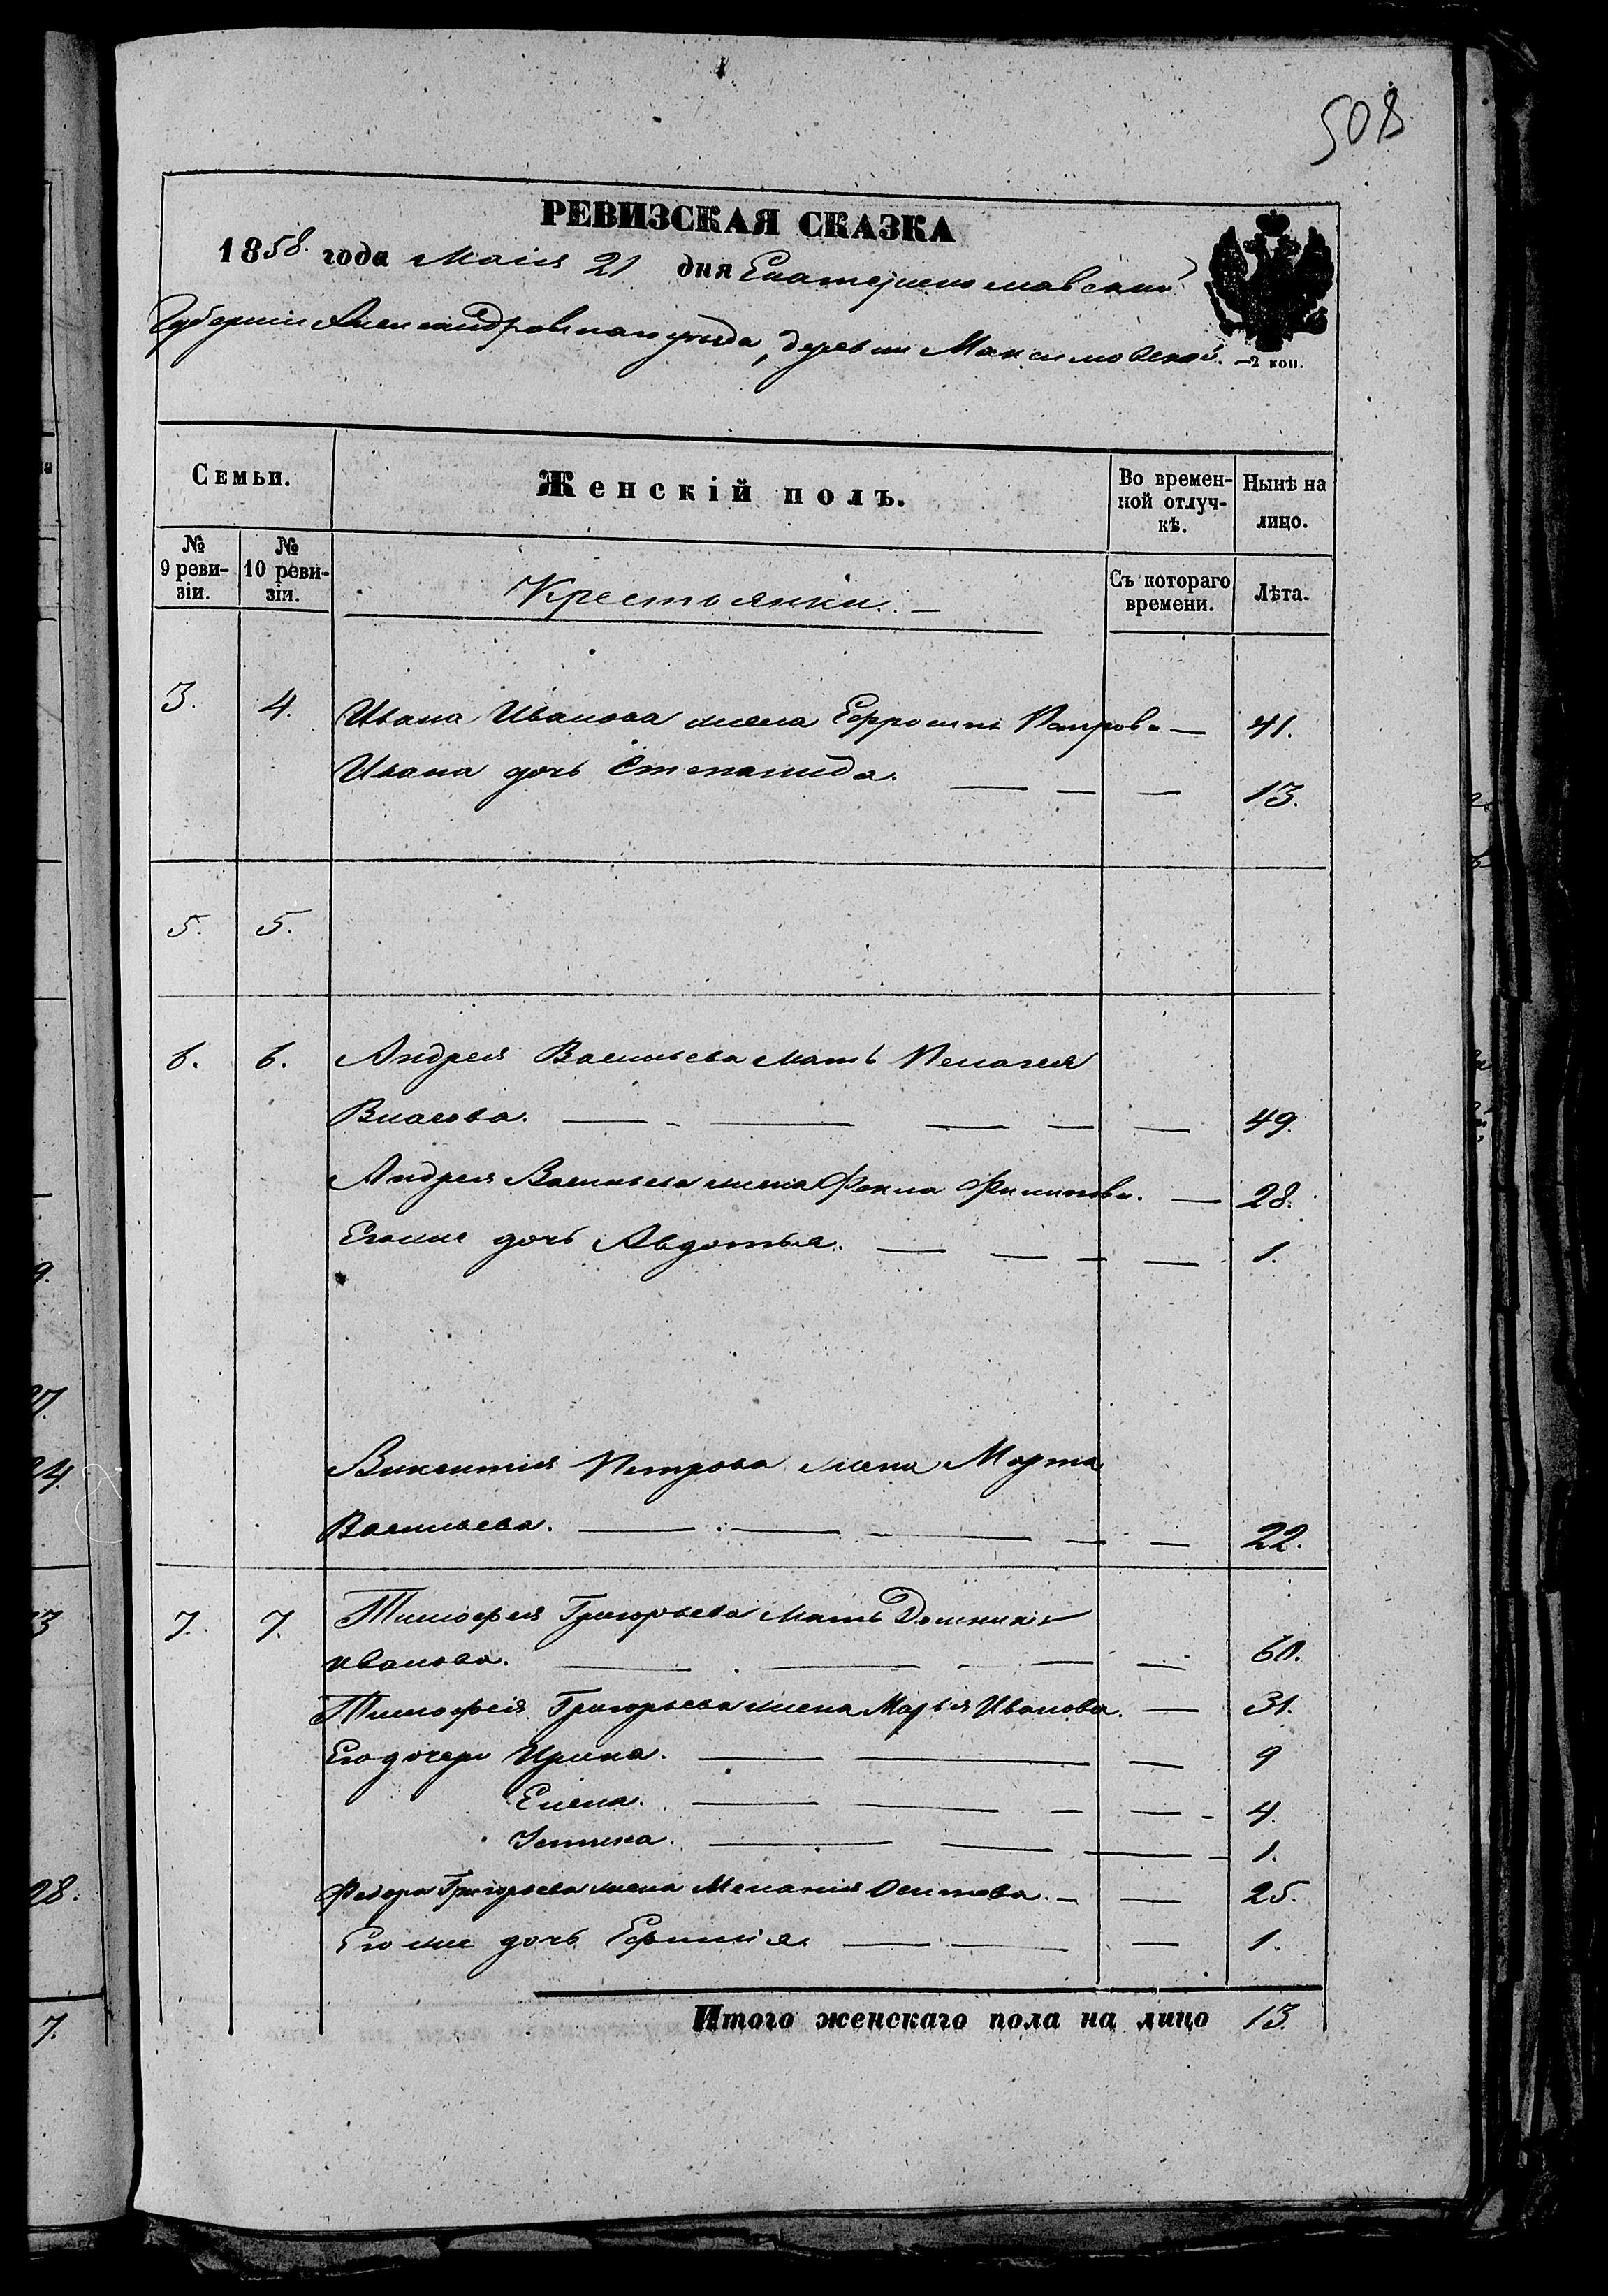 508
РЕВИЗСКАЯ СКАЗКА
1858. года Маія 21 дня Екатеринославской
Губерніи Александровскаго уезда, деревни Максимовской.
—2 коп.
Семьи.
Женскій полъ.
Во времен-
ной отлуч-
кѣ.
Нынѣ на
лицо.
№
9 реви-
зіи.
№
10 реви-
зіи.
Крестьянки. —
Съ котораго
времени.
Лѣта.
3. 4. Ивана Иванова жена Ефросинь Петров. — 41.
Ивана дочь Степанида. — — — 13.
5. 5.
6. 6. Андрея Васильева мать Пелагея
Власова. — — — — — 49.
Андрея Васильева жена Фекла Филипова. — 28.
Егоже дочь Авдотья. — — — — 1.
Викентія Петрова жена Марта
Васильева. — — — — — 22.
7. 7. Тимофея Григорьева мать Домникія
Иванова. — — — — — 60.
Тимофея Григорьева жена Марья Иванова. — 31.
Его дочери Ирина. — — — 9
Елена. — — — — — 4.
Устина. — — — — 1.
Федора Григорьева жена Меланія Осипова. — — 25.
Его же дочь Ефимія. — — — 1.
Итого женскаго пола на лицо 13.
9.
27.
24.
13
28.
7.